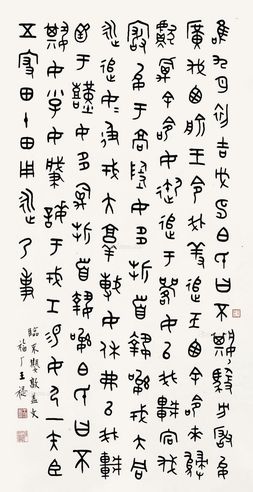 唯九月初吉戊申白氏曰不𡢁馭方厰允
廣伐西俞王令我羞追于西余來歸
獻禽余命女御追于㗊女以我車
宕伐厰允于高陶女多折首執訊戎大同
從追女女及戎大敦女休弗以我車
函于囏女多禽折首執訊白氏曰不
𡢁女小子女肇誨于戎工易女弓一矢束臣
五家田十田用從乃事
臨不𡢁敦蓋文
福厂王禔